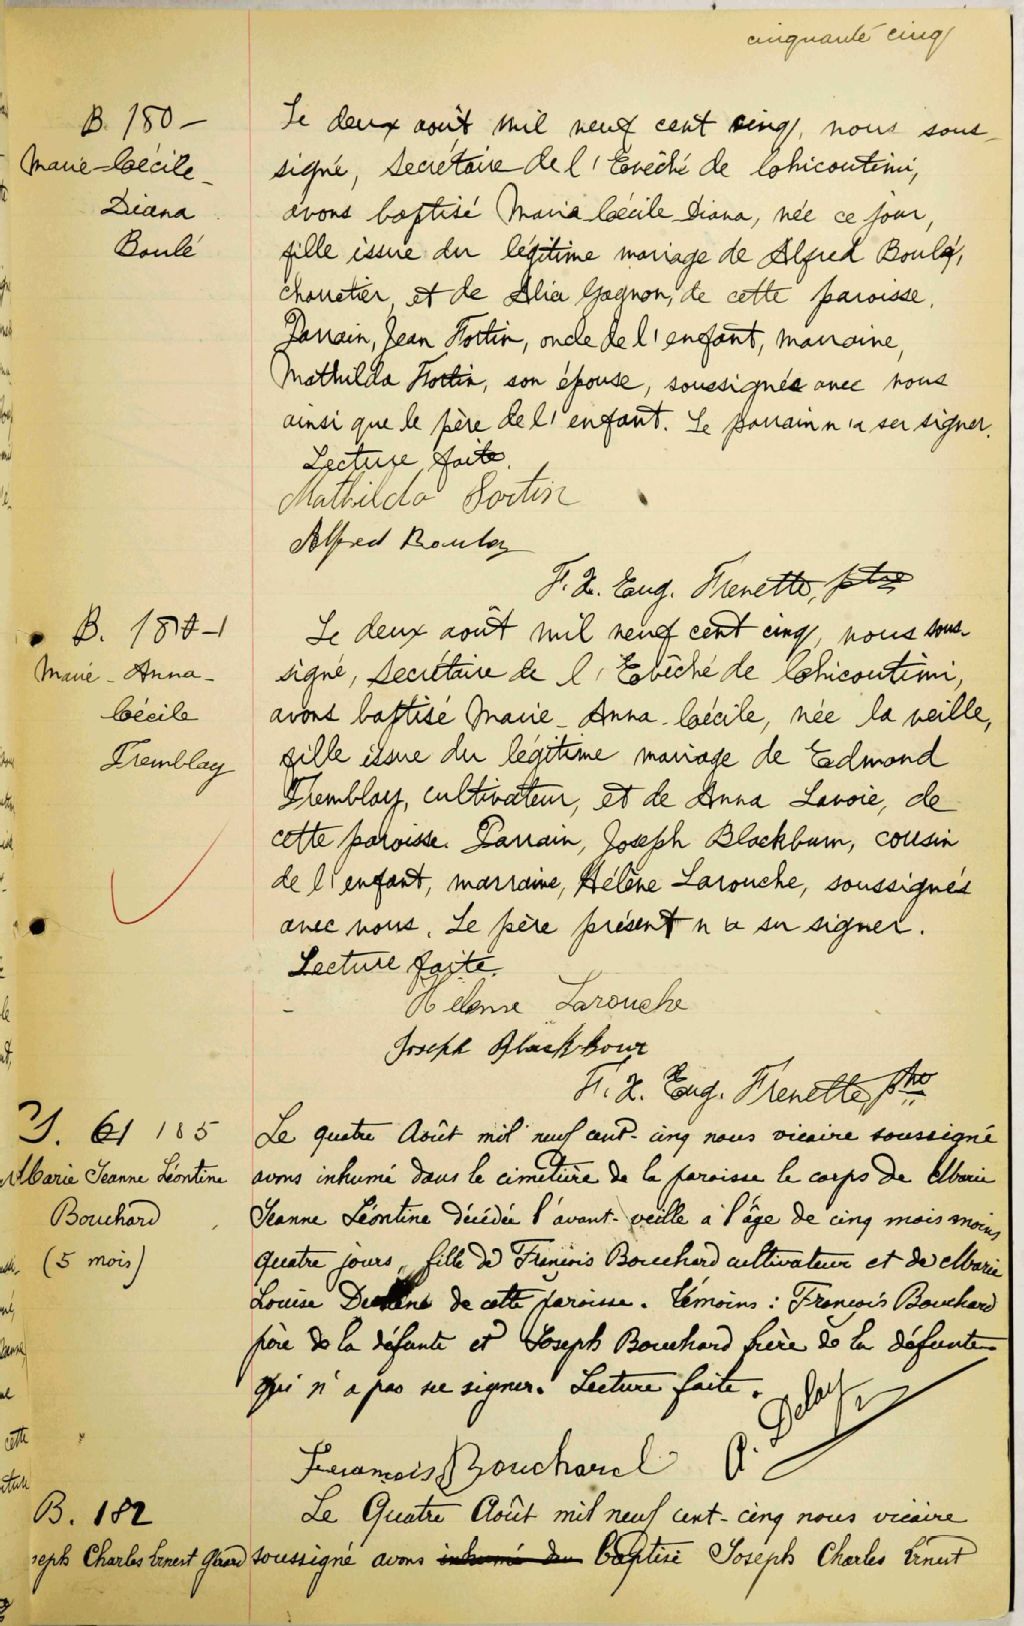 cinquante cinq
B. 180 —
Marie-Cécile-
Diana
Boulé
Le deux août mil neuf cent cinq, nous sous-
signé, secrétaire de l'Evêché de Chicoutimi,
avons baptisé Marie Cécile Diana, née ce jour,
fille issue du légitime mariage de Alfred Boulé,
charretier, et de Alia Gagnon, de cette paroisse.
Parrain, Jean Fortin, oncle de l'enfant, marraine,
Mathilda Fortin, son épouse, soussignée avec nous
ainsi que le père de l'enfant. Le parrain n'a su signer.
Lecture faite.
Mathilda Fortin
Alfred Boulay
F. X. Eug. Frenette, ptre
B. 181
Marie-Anna-
Cécile
Tremblay
Le deux août mil neuf cent cinq, nous sous-
signé, secrétaire de l'Evêché de Chicoutimi,
avons baptisé Marie-Anna-Cécile, née la veille,
fille issue du légitime mariage de Edmond
Tremblay, cultivateur, et de Anna Lavoie, de
cette paroisse. Parrain, Joseph Blackburn, cousin
de l'enfant, marraine, Hélène Larouche, soussignés
avec nous. Le père présent n'a su signer.
Lecture faite.
Hélène Larouche
Joseph Blackbour
F. X. Eug. Frenette, ptre
S. 61 185
Marie Jeanne Léontine
Bouchard
(5 mois)
Le quatre Août mil neuf cent-cinq nous vicaire soussigné
avons inhumé dans le cimetière de la paroisse le corps de Marie
Jeanne Léontine décédée l'avant-veille a l'âge de cinq mois moins
quatre jours, fille de François Bouchard cultivateur et de Marie
Louise de cette paroisse. Témoins : François Bouchard
père de la défunte et Joseph Bouchard frère de la défunte
qui n'a pas su signer. Lecture faite.
François Bouchard
A. Delay
B. 182
Joseph Charles Ernest Gérard
Le Quatre Août mil neuf cent-cinq nous vicaire
soussigné avons inhumé dan baptisé Joseph Charles Ernest